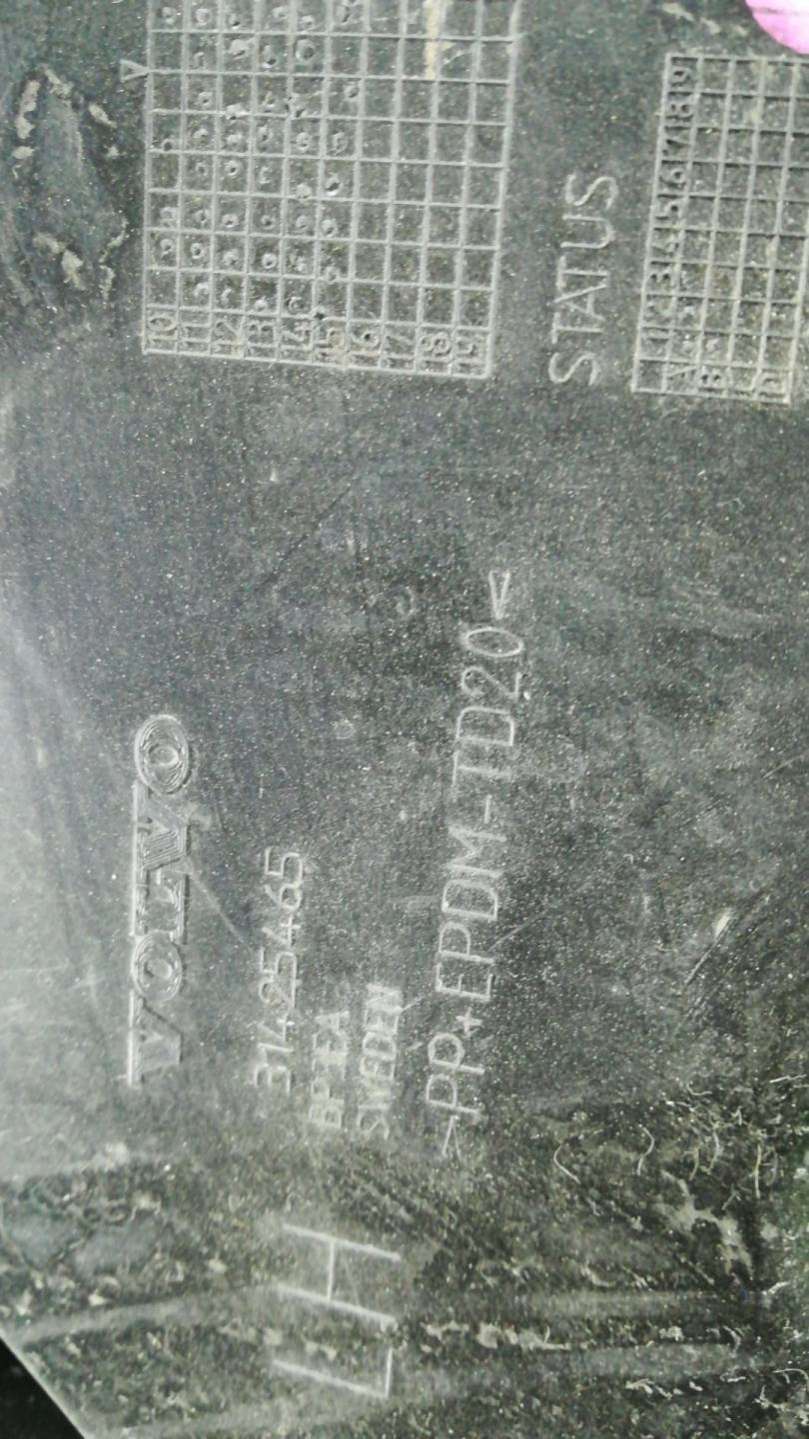 Y
10
11
12
13
14
15
16
17
18
19
STATUS
1 2 3 4 5 6 7 8 9
A
B
D
VOLVO
31425465
SWEDEN
>PP+EPDM-TD20<
LH